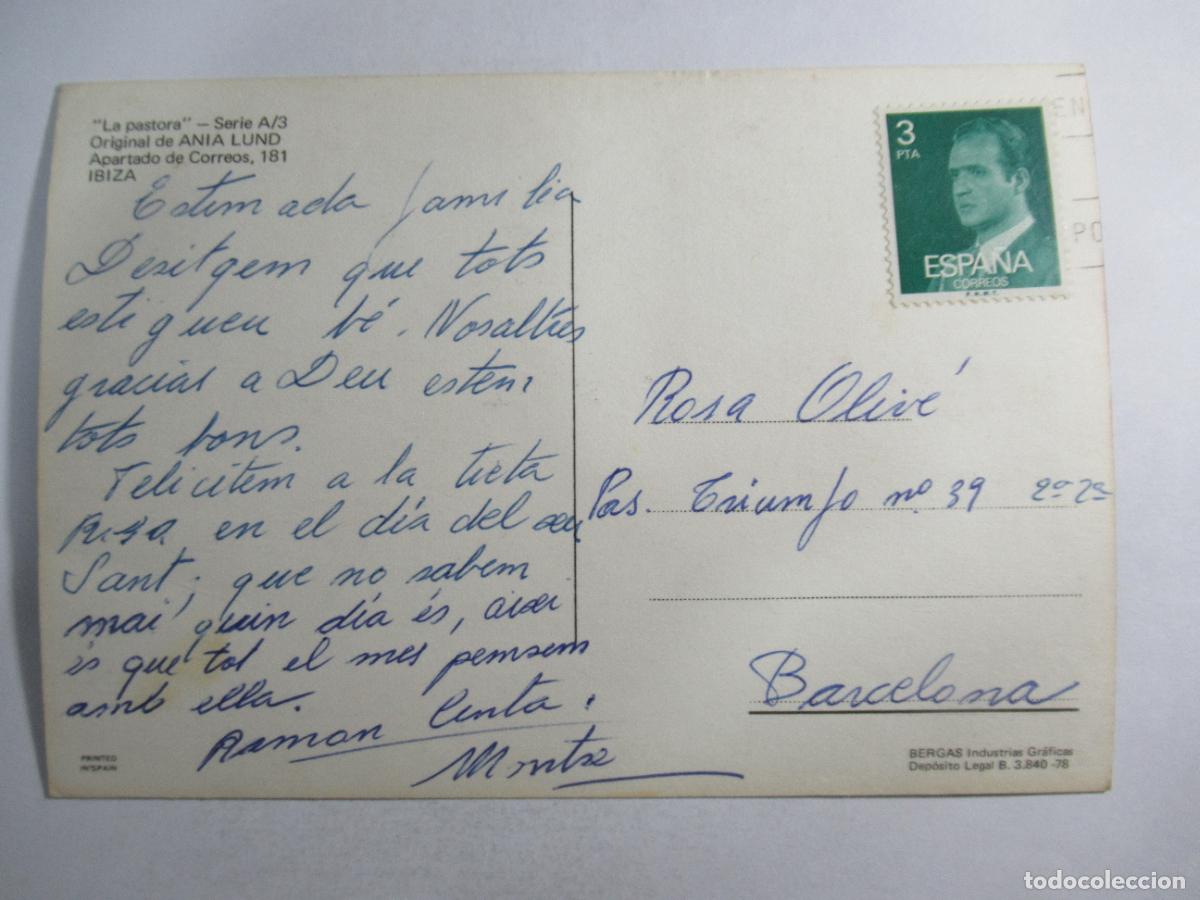 "La pastora" — Serie A/3
Original de ANIA LUND
Apartado de Correos, 181
IBIZA
Estimada familia
Desitgem que tots
estigueu bé. Nosaltres
gracias a Deu estem
tots bons.
Felicitem a la tieta
Rosa en el día del seu
Sant; que no sabem
mai quin día és, aixo
és que tot el mes pemsem
amb ella.
Ramon Cinta.
Montse
PRINTED
IN SPAIN
3
PTA
ESPAÑA
CORREOS
F.N.M.T.
EN
PO
Rosa Olivé
Pas. Triumfo nº 39 2º 2ª
Barcelona
BERGAS Industrias Gráficas
Depósito Legal B. 3.840 -78
todocoleccion